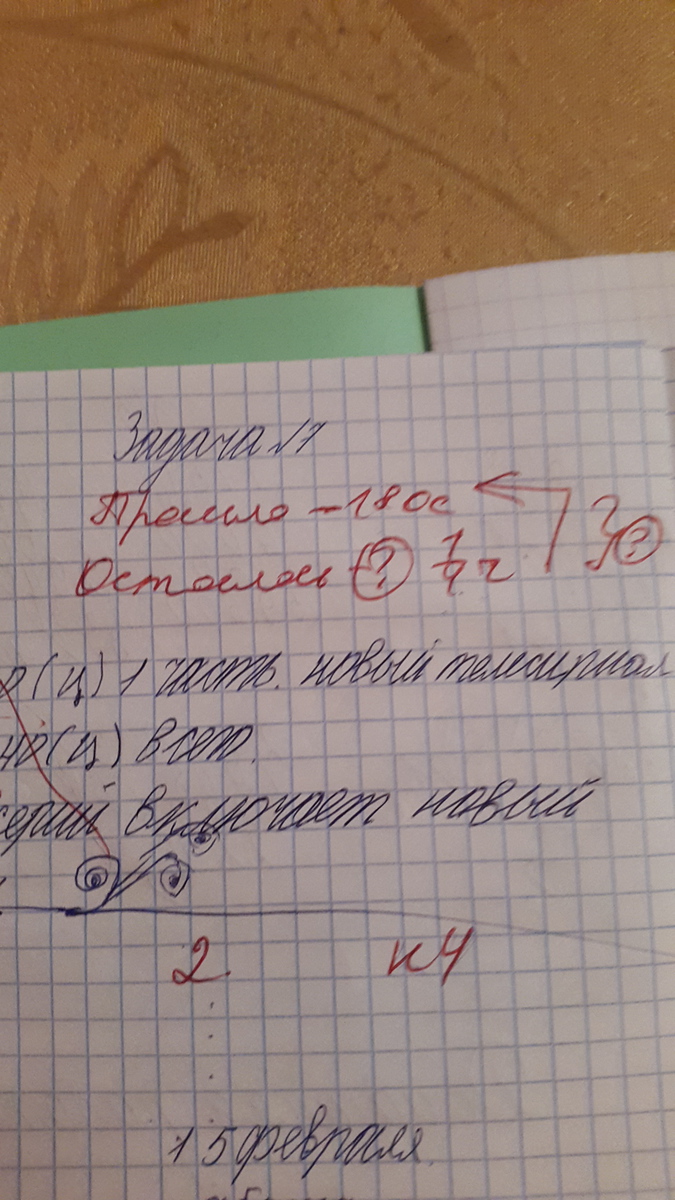 Задача №1
Прошло - 180с
Осталось (?) 1/4 ч } (?)
(ц) 1 часть. новый телесириал
(ц) всего.
серий включает новый
2
15 февраля.